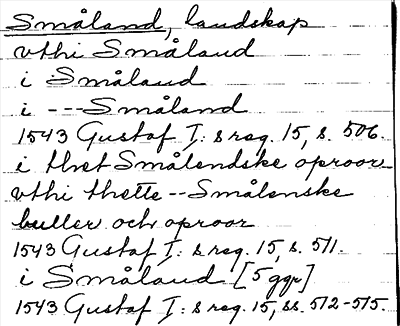 Småland, landskap
vthi Småland
i Småland
i --- Småland
1543 Gustaf I: s reg. 15, s. 506.
i thet Småländske oproor
vthi thette -- Smålenske
buller och oproor
1543 Gustaf I: s reg. 15, s. 511.
i Småland [5 ggr]
1543 Gustaf I: s reg. 15, ss. 512-515